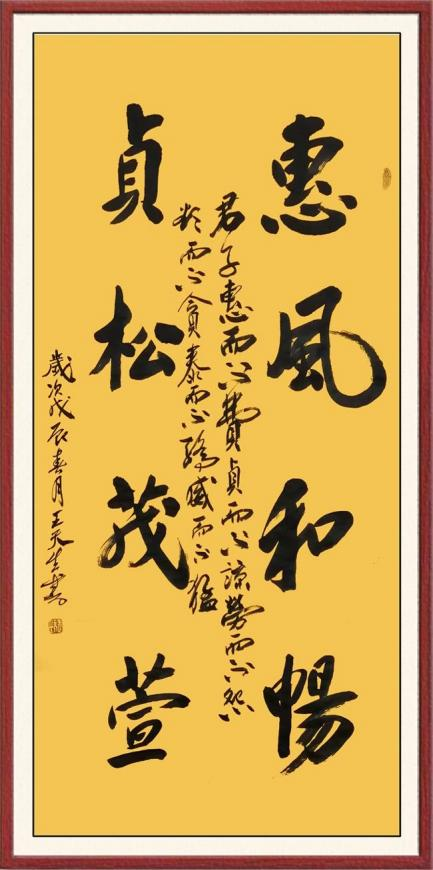 惠風和暢
君子惠而不費貞而不諒勞而不怨
欲而不貪泰而不驕威而不猛
貞松茂萱
歲次戊辰春月王天生書